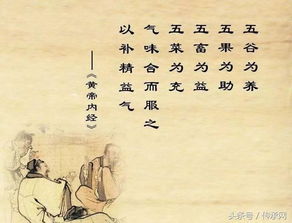 五谷为养
五果为助
五畜为益
五菜为充
气味合而服之
以补精益气
——《黄帝内经》
头条号／传承网